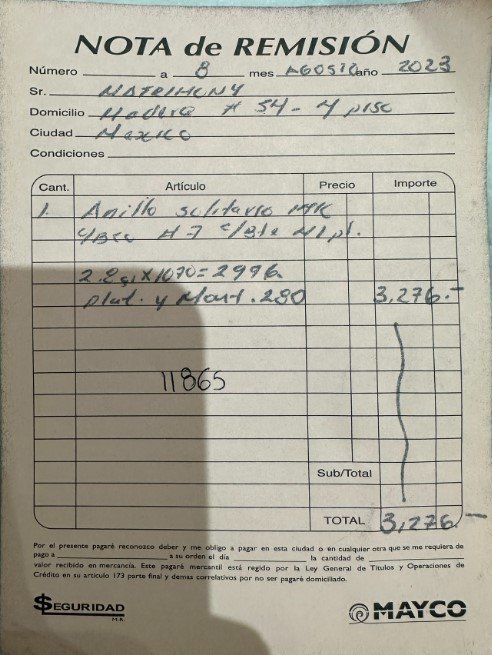 NOTA de REMISIÓN
Número a 8 mes AGOSTO año 2023
Sr. MATRIMONY
Domicilio Madero # 54 - 4 piso
Ciudad Mexico
Condiciones
Cant. Artículo Precio Importe
1. Anillo solitario 14K
y/Bco #-7 c/Bte
2.8g X 1070 = 2996.
plat. y Mont. 280 3,276.-
11865
Sub/Total
TOTAL 3,276.-
Por el presente pagaré reconozco deber y me obligo a pagar en esta ciudad o en cualquier otra que se me requiera de
pago a a su orden el día la cantidad de
valor recibido en mercancía. Este pagaré mercantil está regido por la Ley General de Títulos y Operaciones de
Crédito en su artículo 173 parte final y demas correlativos por no ser pagaré domiciliado.
$EGURIDAD
M.R.
MAYCO